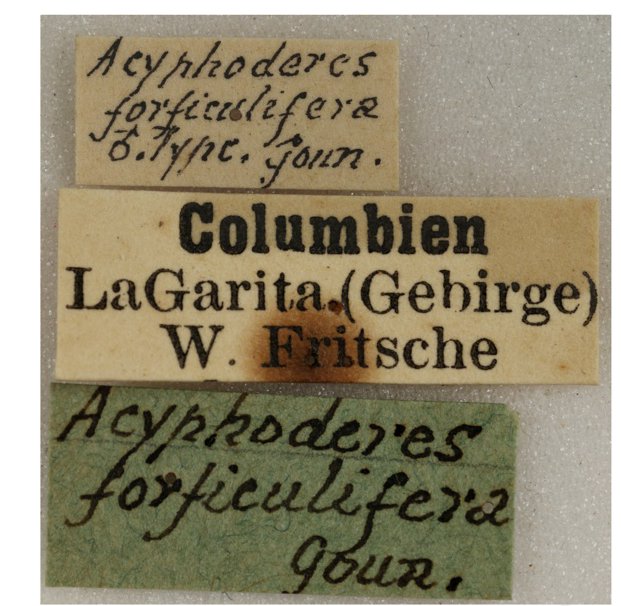 Acyphoderes
forficulifera
♂. Type. Goun.
Columbien
LaGarita.(Gebirge)
W. Fritsche
Acyphoderes
forficulifera
Goun.